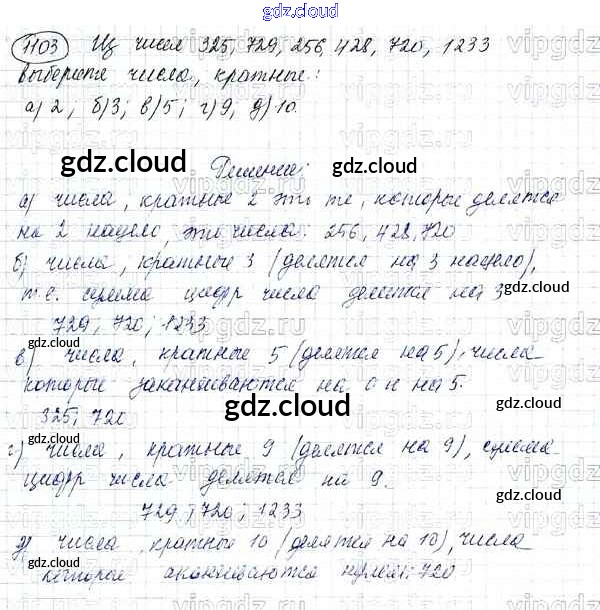 gdz.cloud
1103 Из чисел 325, 729, 256, 428, 720, 1233
выберите числа, кратные:
а) 2; б) 3; в) 5; г) 9; д) 10.
gdz.cloud gdz.cloud
Решение:
а) числа, кратные 2 это те, которые делятся
на 2 нацело, эти числа: 256, 428, 720
б) числа, кратные 3 (делятся на 3 нацело),
т.е. сумма цифр числа делится на 3
gdz.cloud
729; 720; 1233
gdz.cloud
в) числа, кратные 5 (делятся на 5), числа
которые заканчиваются на 0 и на 5.
325; 720
gdz.cloud gdz.cloud
г) числа, кратные 9 (делятся на 9), сумма
цифр числа делится на 9.
gdz.cloud
729; 720; 1233
д) числа, кратные 10 (делятся на 10), числа
gdz.cloud gdz.cloud
которые оканчиваются нулем: 720